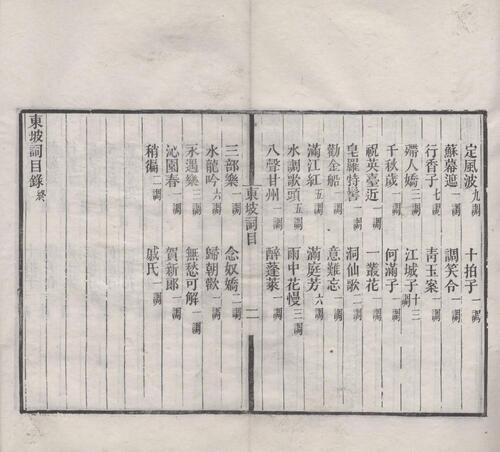 定風波九調 十拍子一調
蘇幕遮一調 調笑令一調
行香子七調 青玉案一調
殢人嬌三調 江城子十三調
千秋歲一調 何滿子一調
祝英臺近一調 一叢花一調
皇羅特髻一調 洞仙歌二調
勸金船一調 意難忘一調
滿江紅五調 滿庭芳六調
水調歌頭五調 雨中花慢三調
八聲甘州一調 醉蓬萊一調
東坡詞目 二
三部樂一調 念奴嬌二調
水龍吟六調 歸朝歡一調
永遇樂三調 無愁可解一調
沁園春一調 賀新郎一調
稍徧二調 戚氏一調
東坡詞目錄終